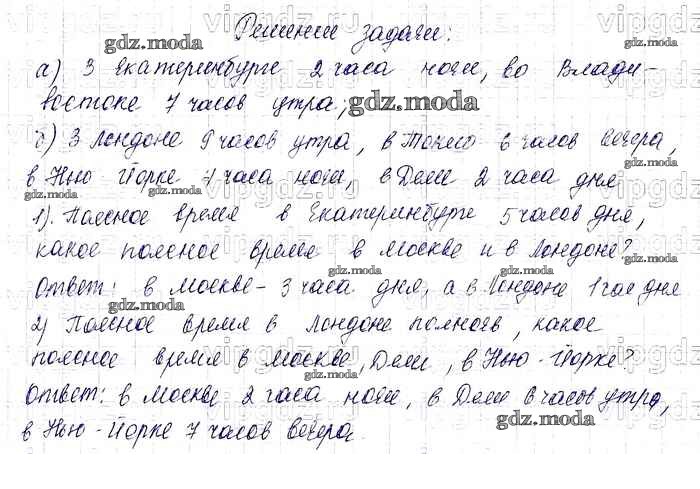 Решение задачи:
а) З Екатеринбурге 2 часа ночи, во Влади-
востоке 7 часов утра;
б) З Лондоне 9 часов утра, в Токио 6 часов вечера,
в Нью-Йорке 4 часа ночи, в Дели 2 часа дня
1). Поясное время в Екатеринбурге 5 часов дня,
какое поясное время в Москве и в Лондоне?
Ответ: в Москве - 3 часа дня, а в Лондоне 1 час дня
2) Поясное время в Лондоне полночь, какое
поясное время в Москве, Дели, в Нью-Йорке?
Ответ: в Москве 2 часа ночи, в Дели 6 часов утра,
в Нью-Йорке 7 часов вечера.
gdz.moda
vipgdz.ru